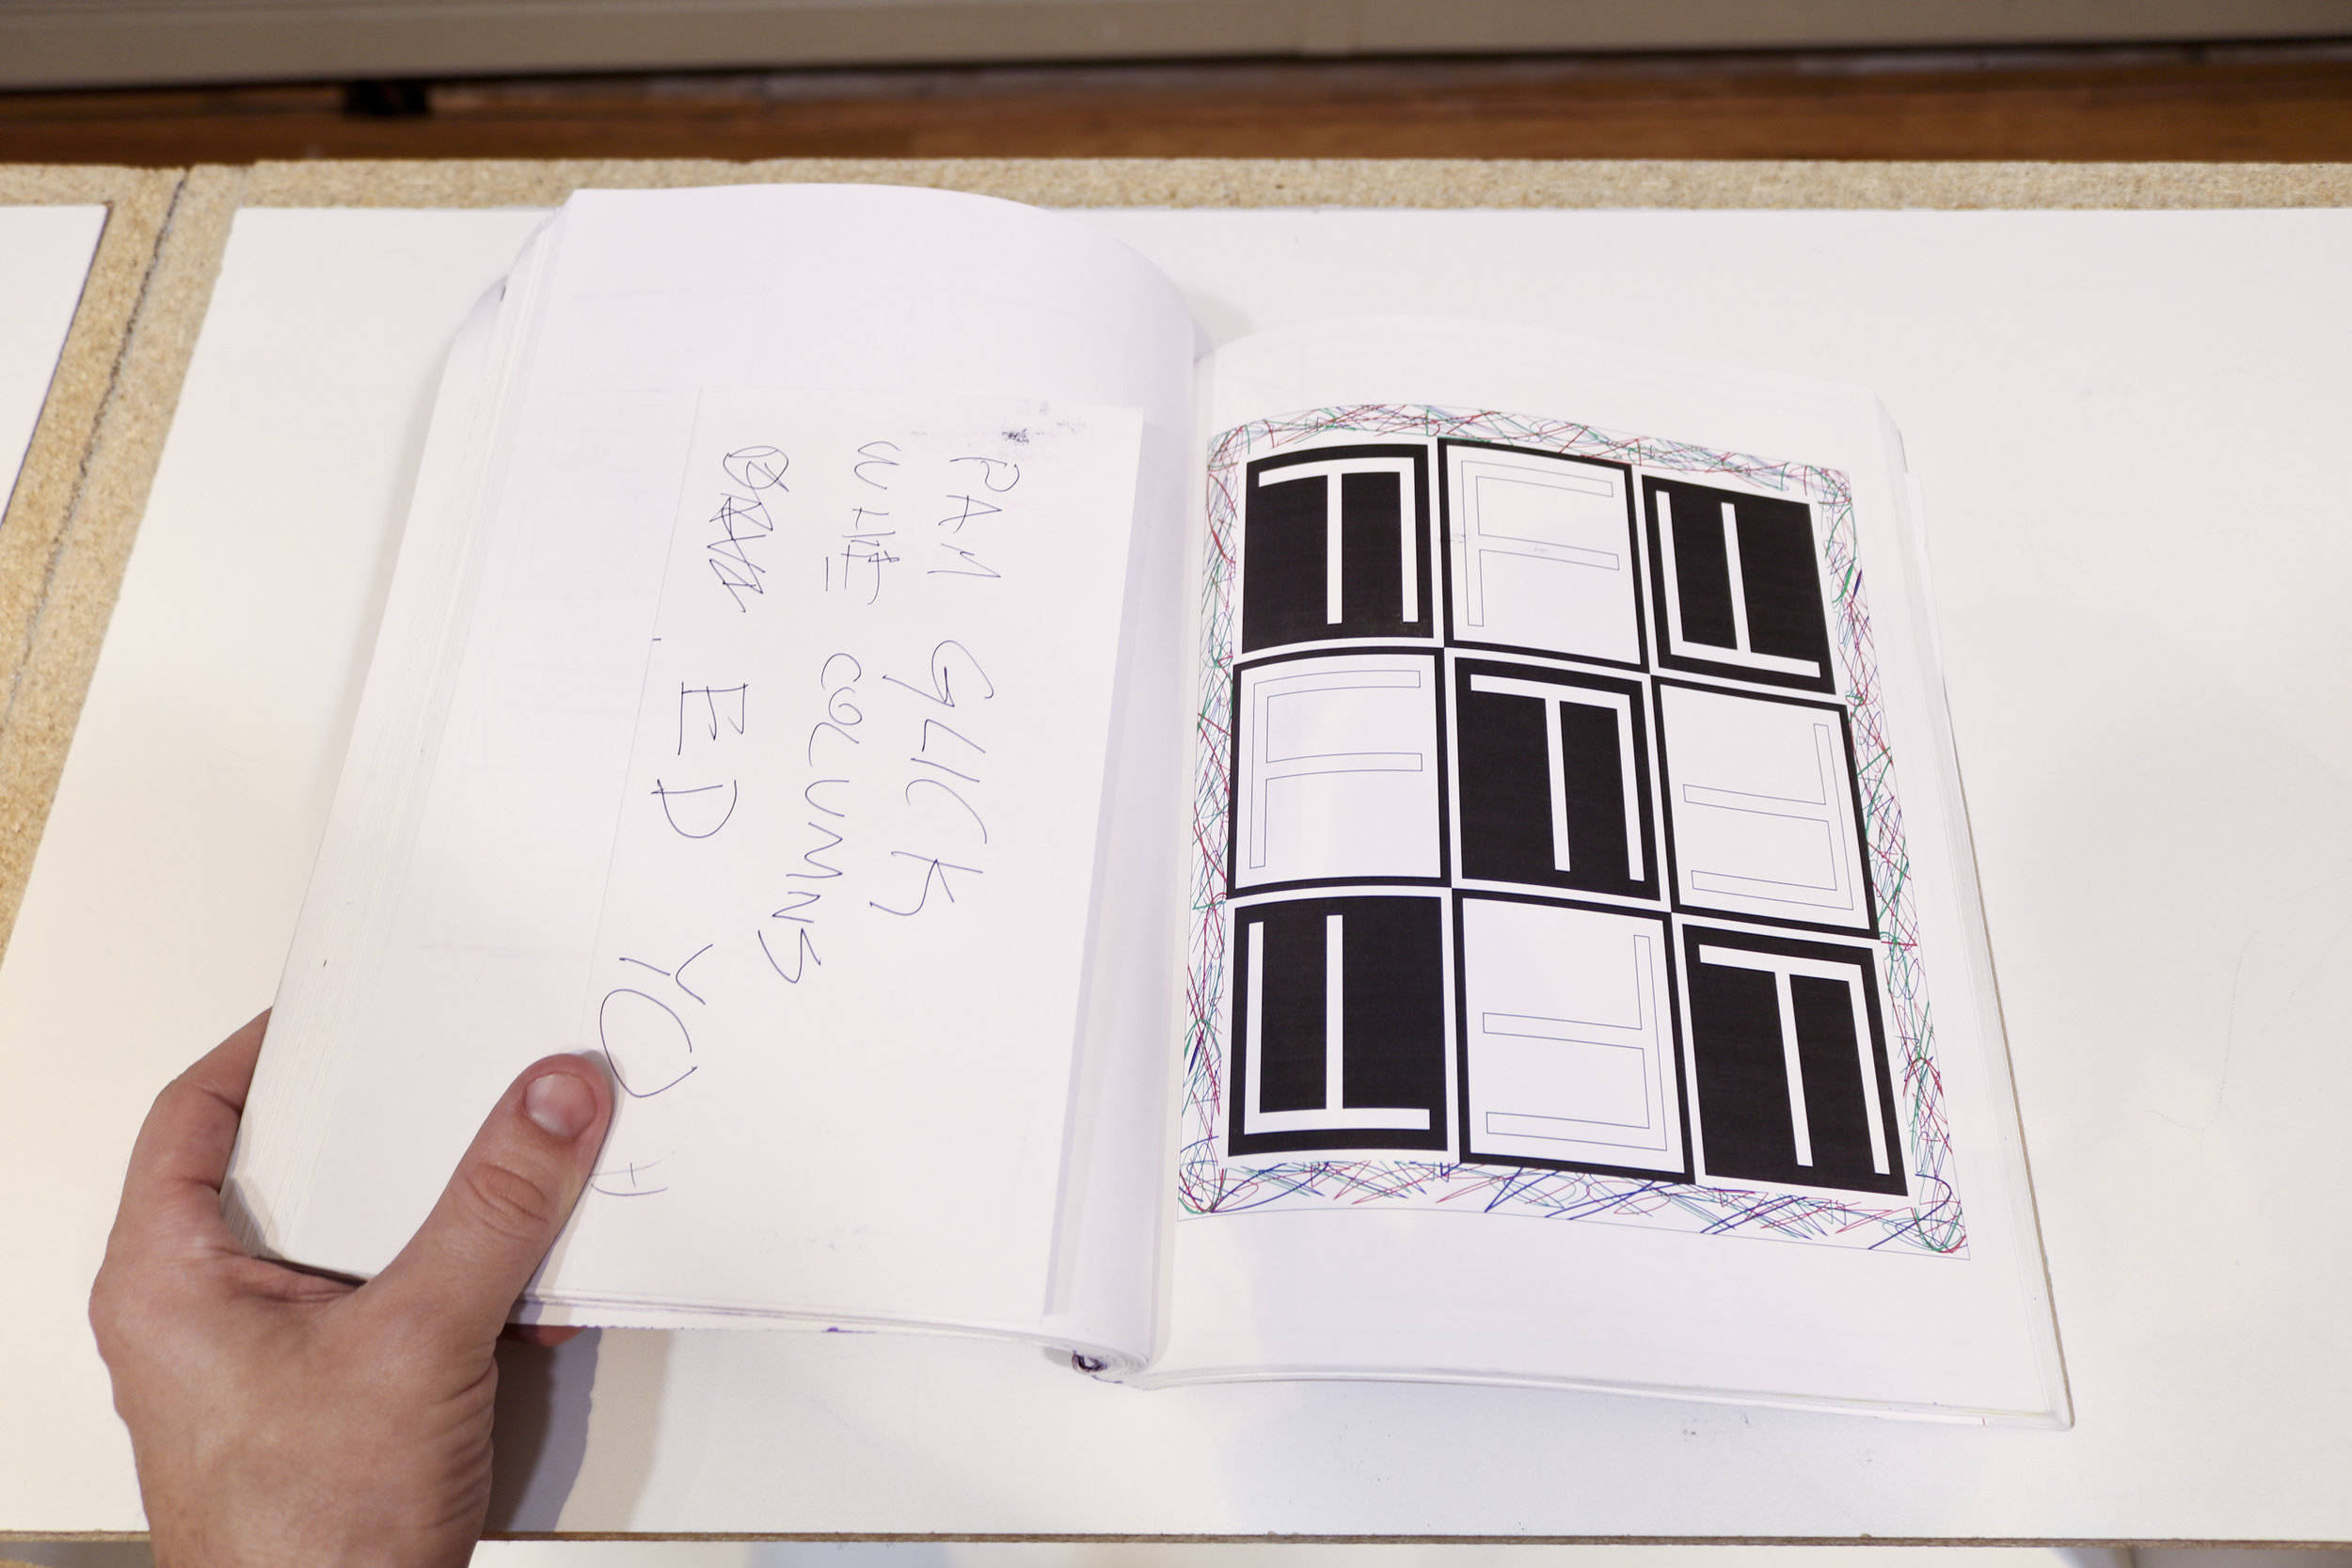 PAM GLICK
WHITE COLUMNS
ED YO